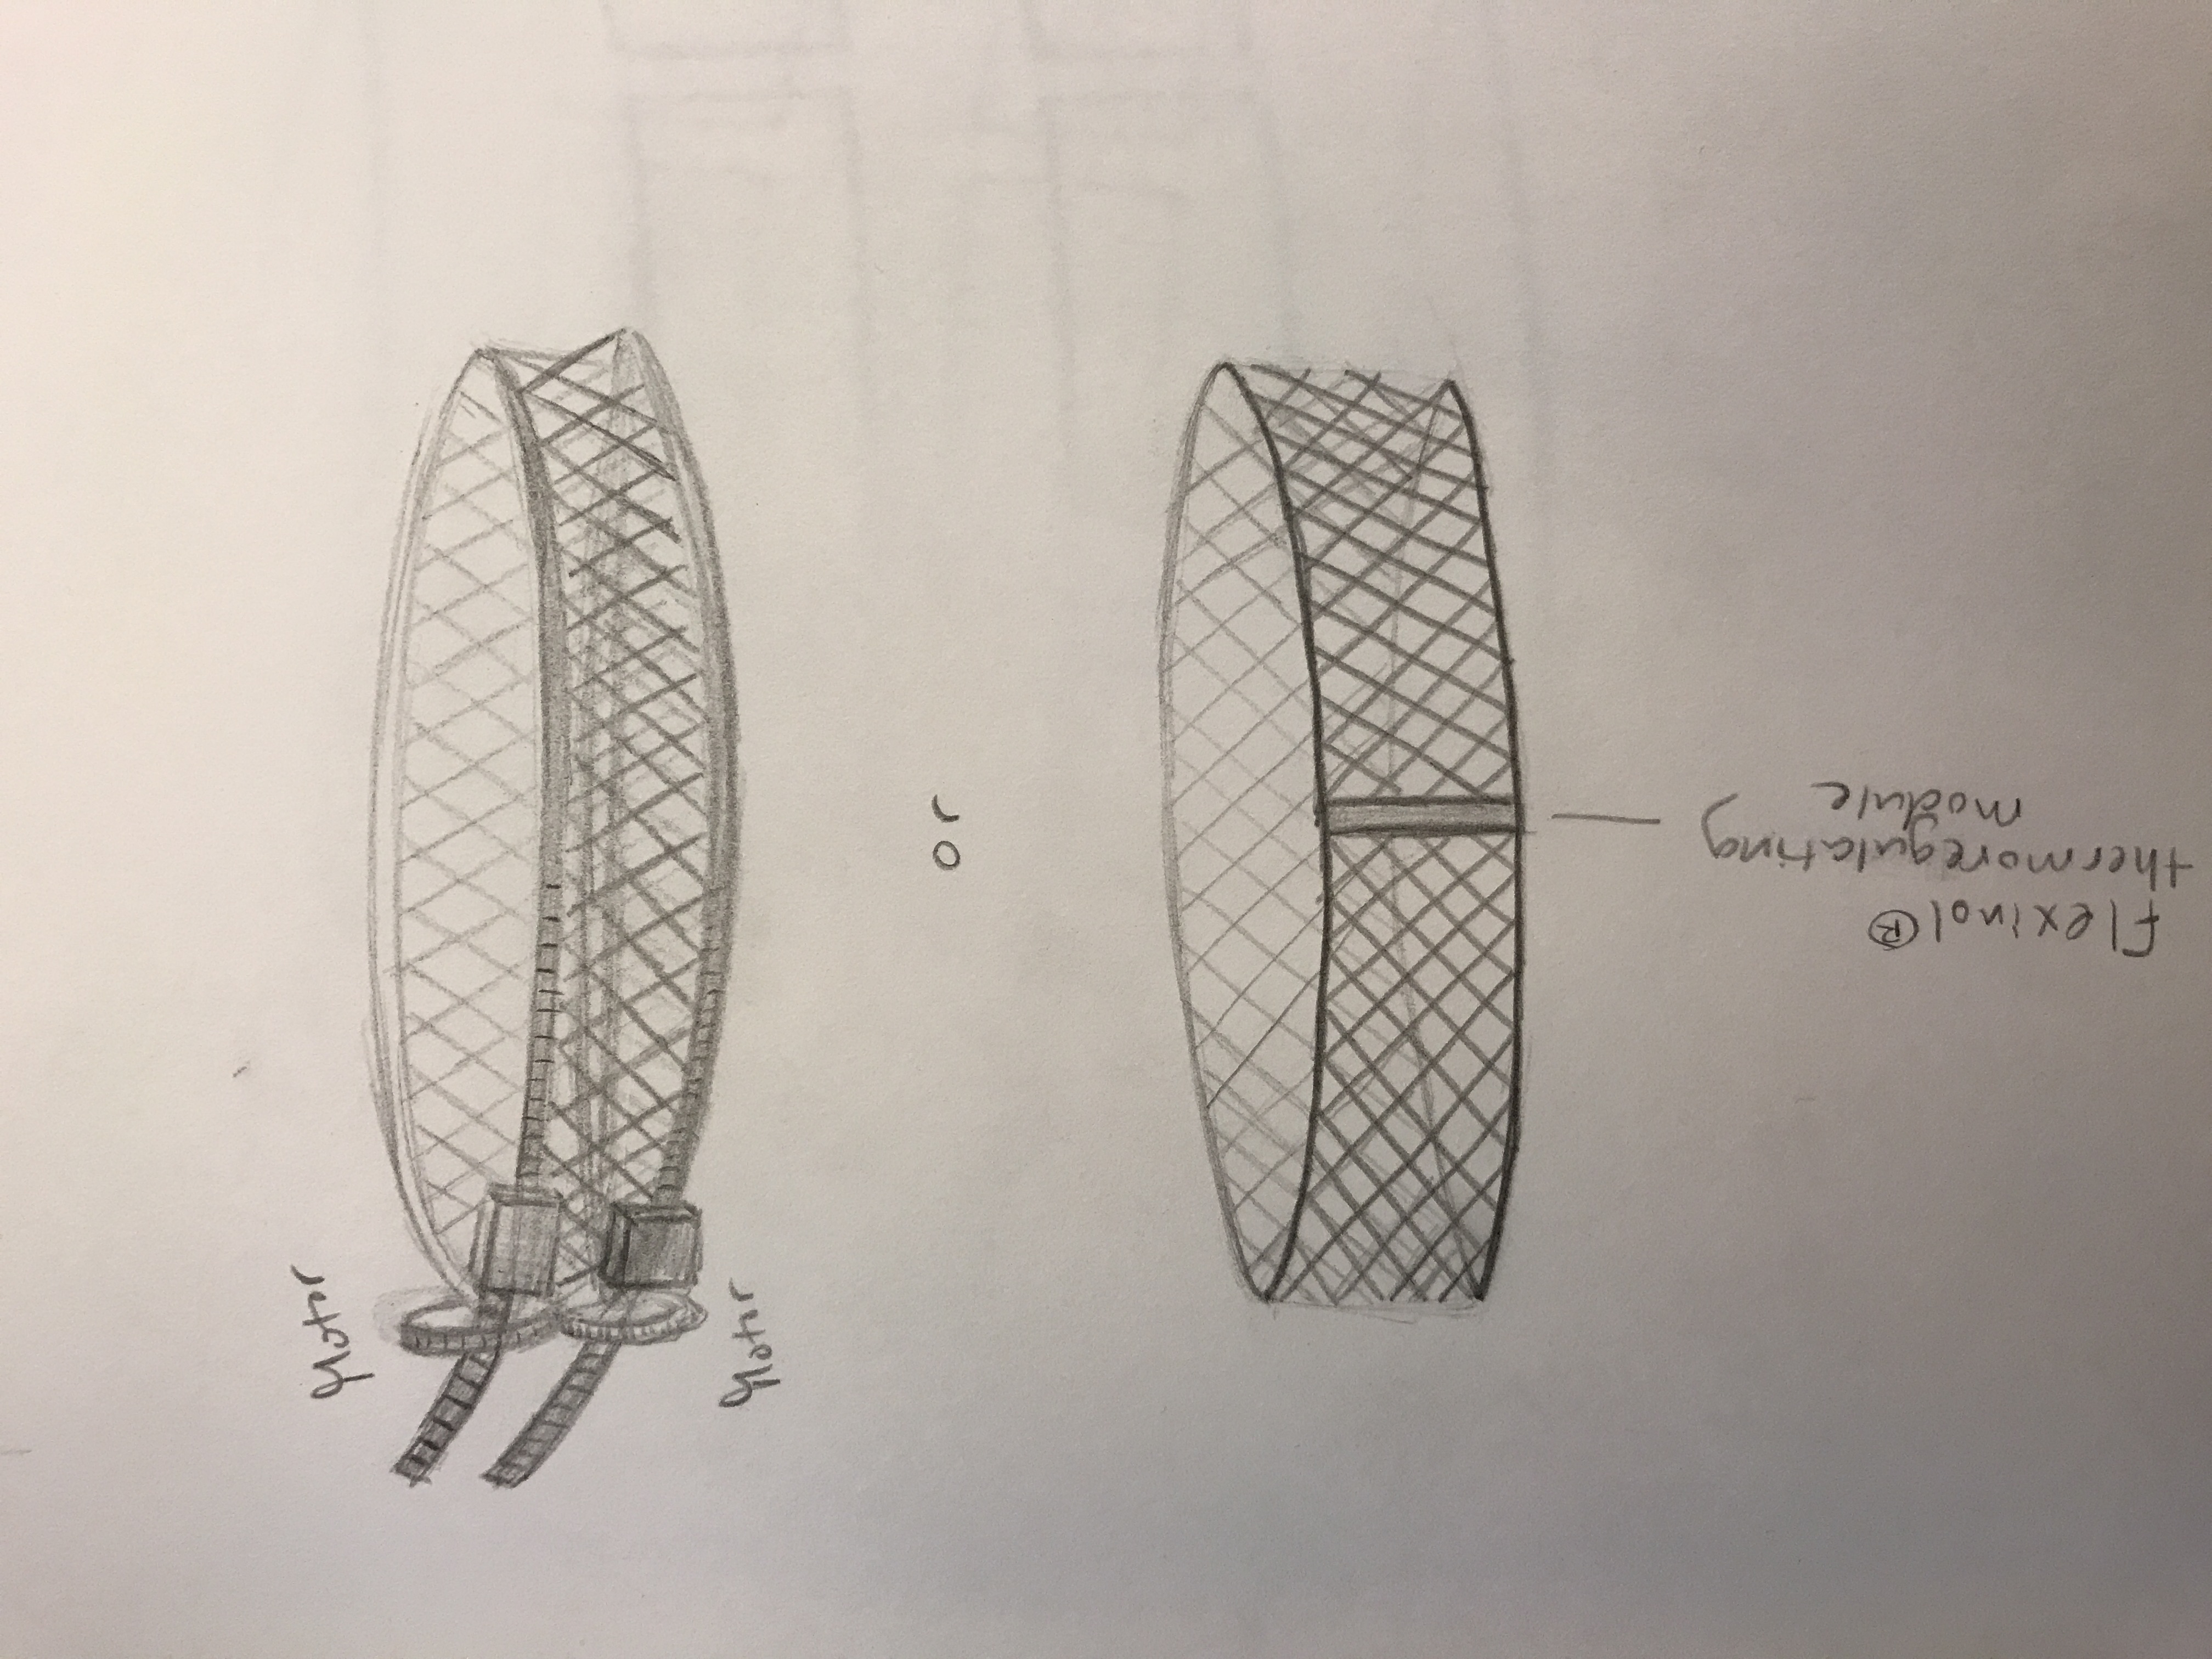 Motor
Motor
or
flexinol®
thermoregulating
module